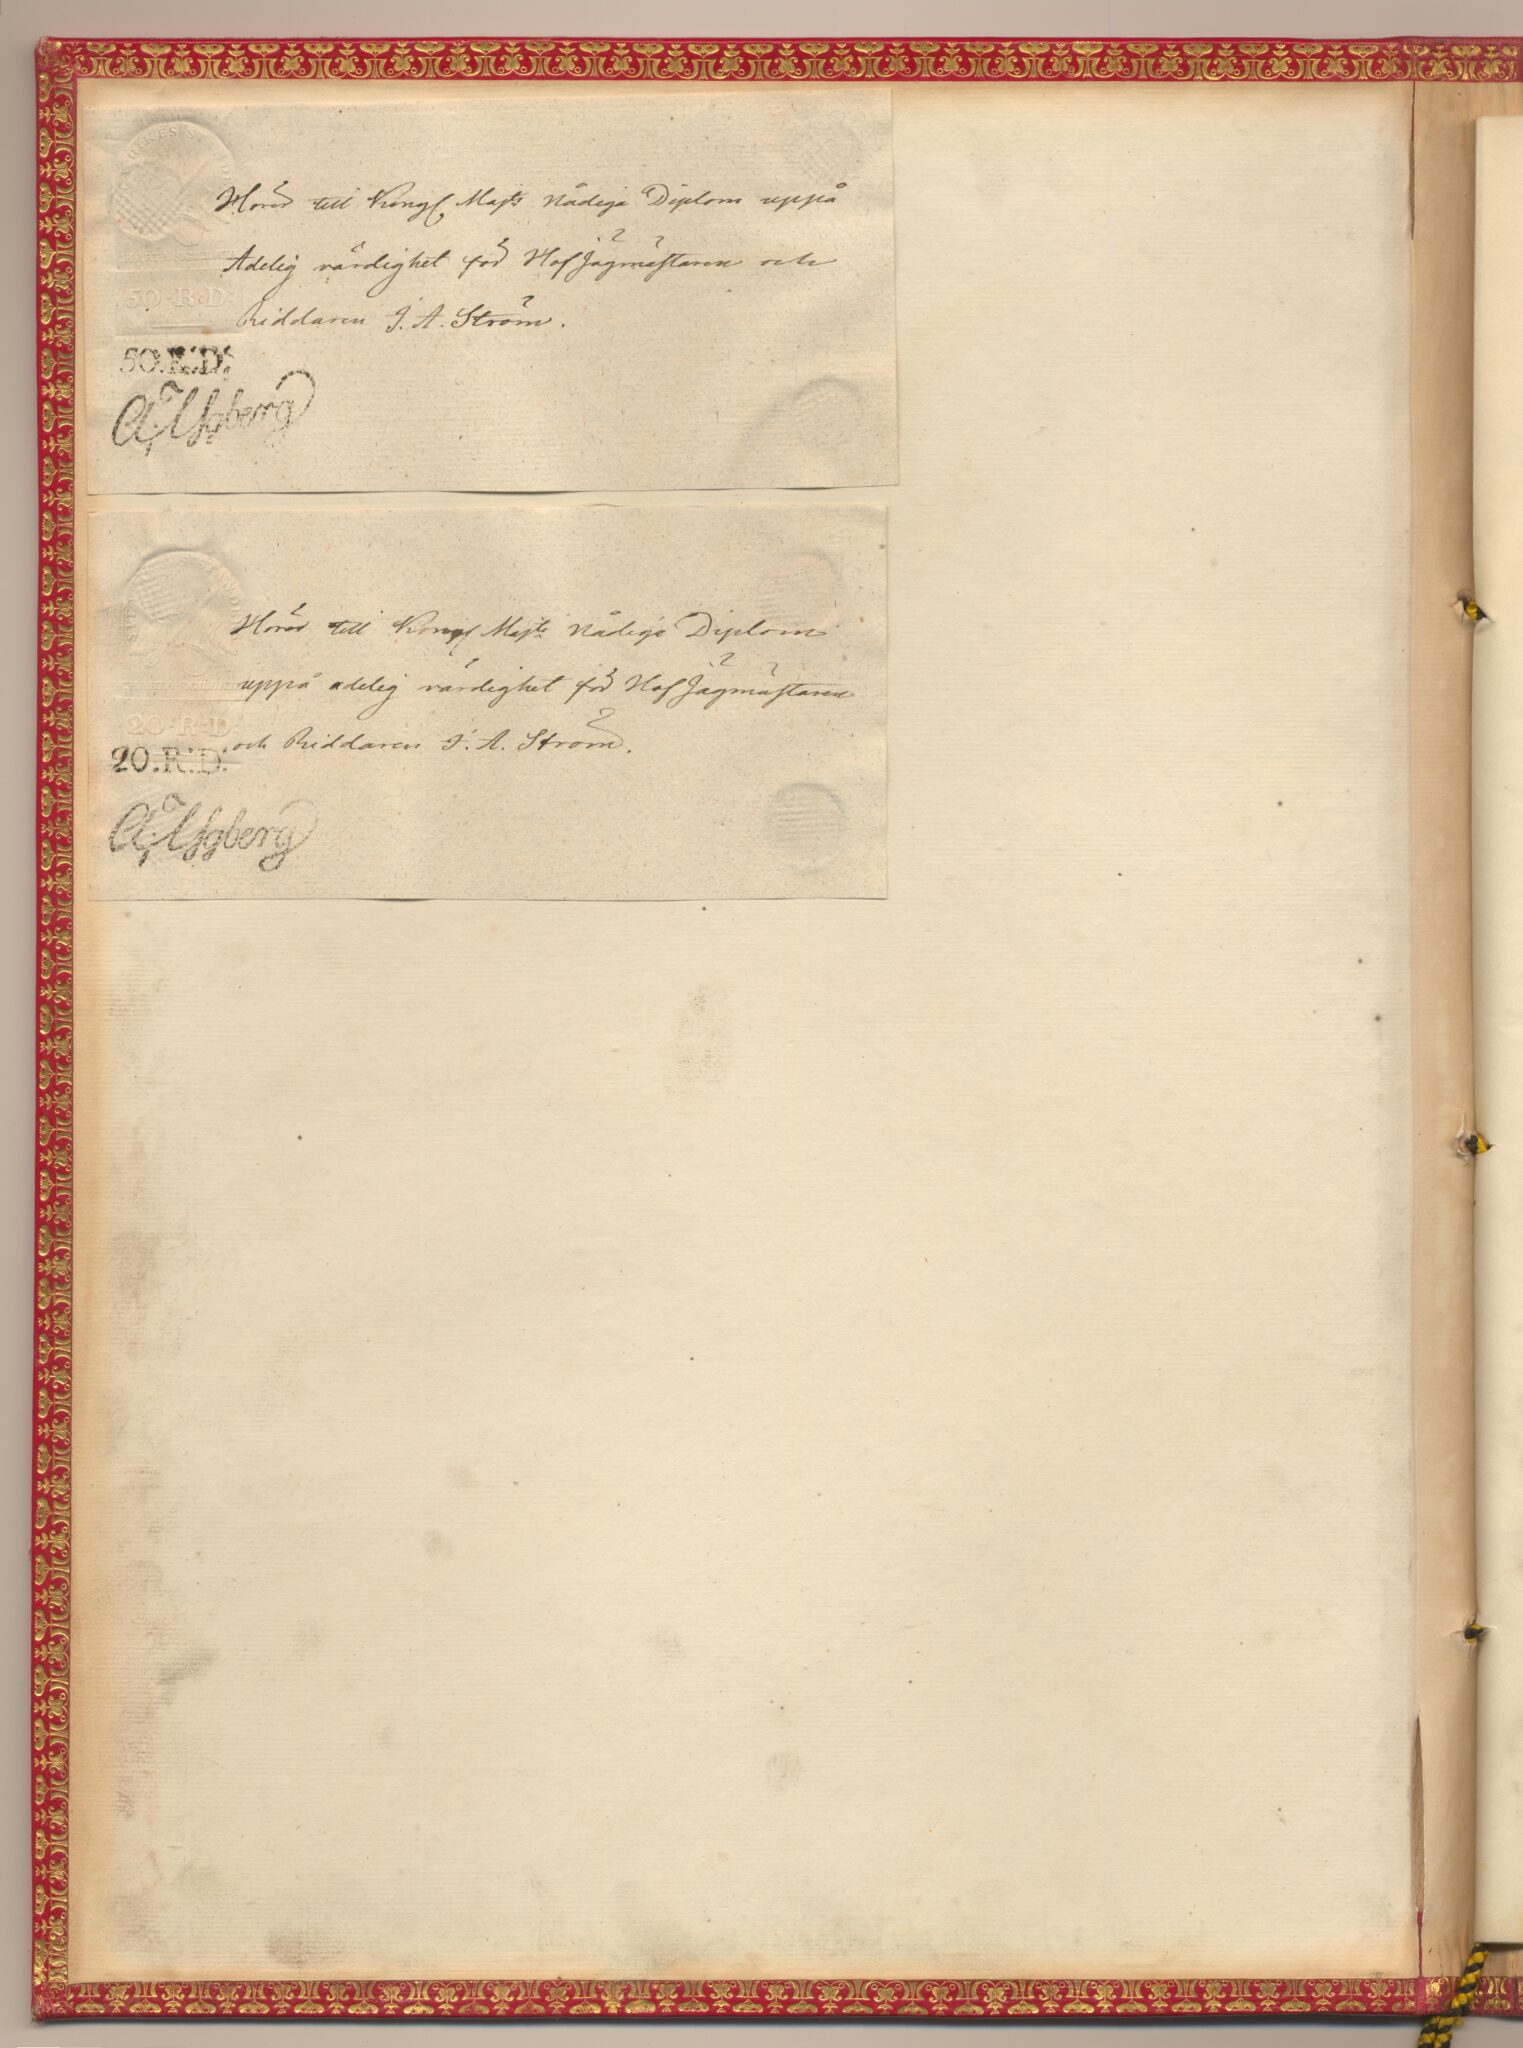 Hörer till Kongl. Majts Nådiga Diplom uppå
Adelig värdighet för HofJägmästaren och
Riddaren I. A. Ström.
50 R.D.
50.R:D:
Hörer till Kongl Majts Nådiga Diplom
uppå adelig värdighet för HofJägmästaren
och Riddaren I. A. Ström.
20 R.D.
20.R:D: